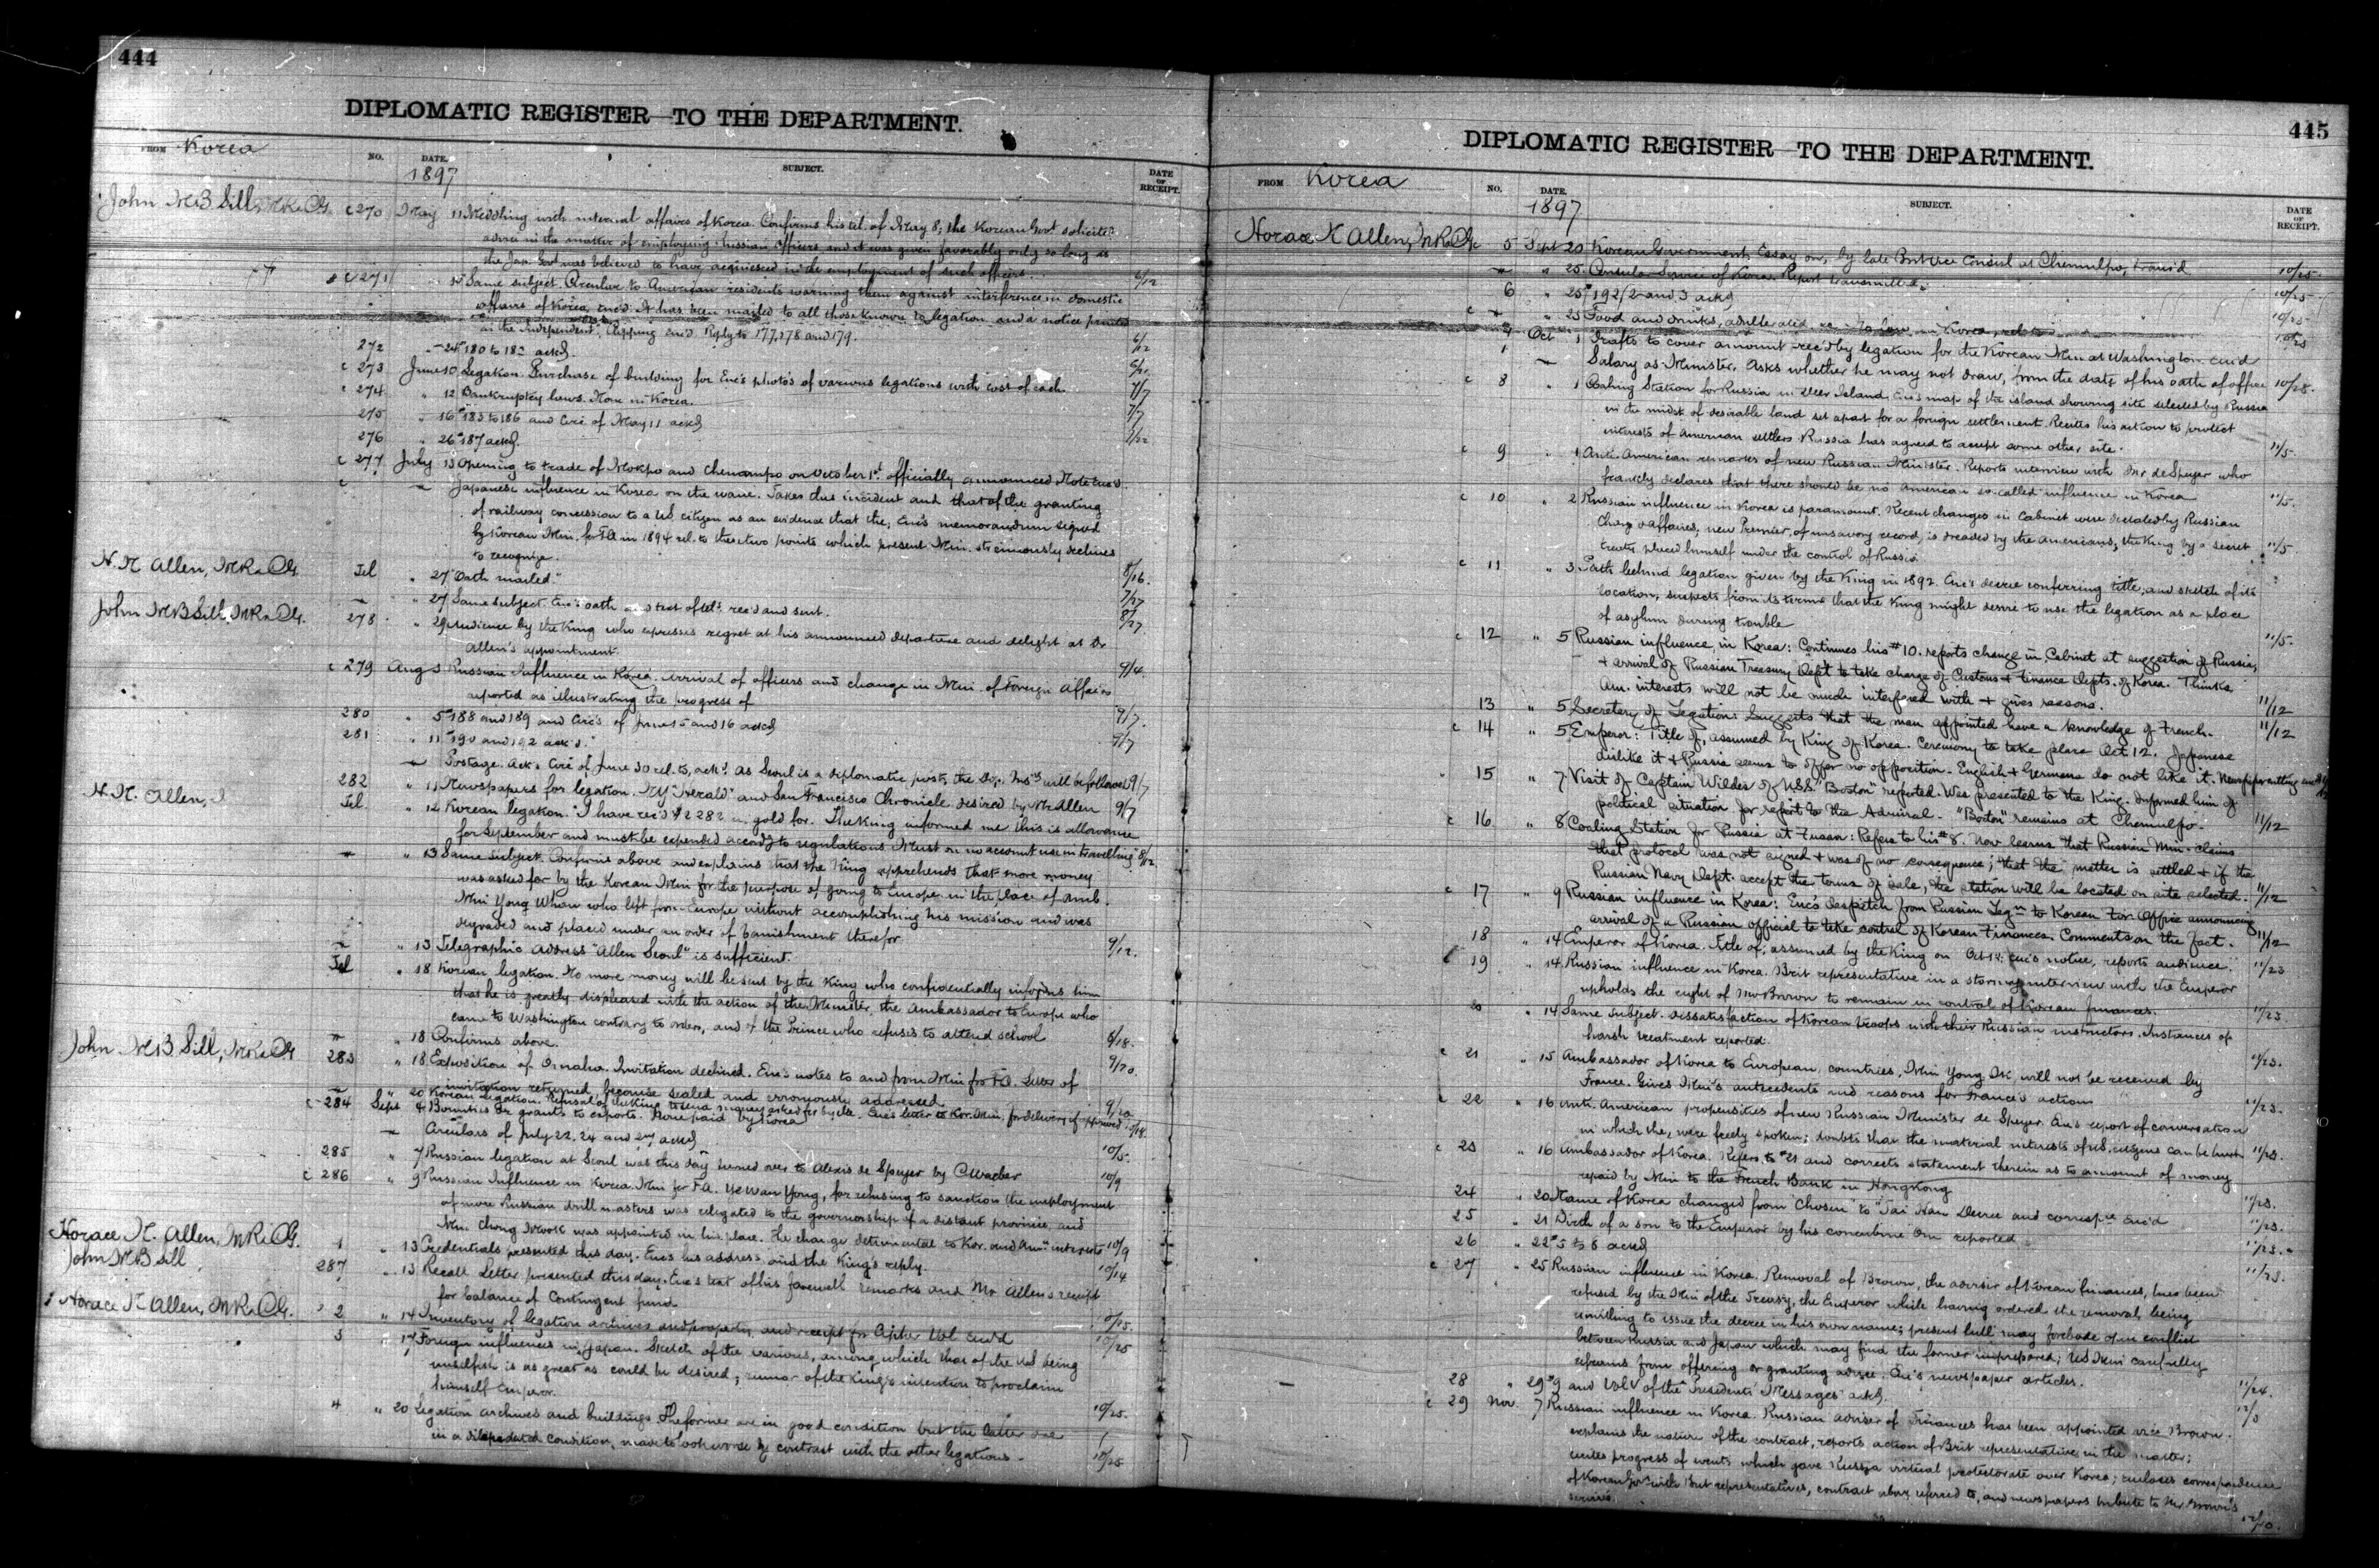 444
DIPLOMATIC REGISTER—TO THE DEPARTMENT.
FROM Korea
NO. DATE. SUBJECT. DATE OF RECEIPT.
1897
John M B Sill, MR & CG. c 270 May 11 Meddling with internal affairs of Korea. Confirms his tel. of May 8; the Korean Govt solicited
advice in the matter of employing Russian Officers and it was given favorably only so long as
the Jap. Govt was believed to have acquiesced in the employment of such officers. 6/12
c 271 Same subject. Circular to American residents warning them against interference in domestic
affairs of Korea, enc'd. It has been mailed to all those known to legation and a notice printed
in the "Independent". Clipping enc'd. Reply to 177, 178 and 179. 6/12
272 " 24 #180 to 182 ackd.
c 273 June 10 Legation. Purchase of building for. Enc's photo's of various legations with cost of each. 7/7
c 274 " 12 Bankruptcy laws. None in Korea. 7/7
275 " 16 #183 to 186 and Circ. of May 11 ackd
276 " 26 #187 ackd. 7/22
c 277 July 13 Opening to trade of Mokpo and Chenampo on October 1st officially announced. Note enc'd.
c — Japanese influence in Korea on the wane. Takes this incident and that of the granting
of railway concession to a US citizen as an evidence that the; Enc's memorandum signed
by Korean Min. for FA in 1894 rel. to these two points which present Min. strenuously declines
to recognize. 8/16.
H. N. Allen, MR & CG. Tel " 27 "Oath mailed." 7/27
— " 27 Same subject. Enc's oath and text of tel. rec'd and sent. 8/27
John M B Sill, MR & CG. 278 " 29 Audience by the King who expresses regret at his announced departure and delight at Dr
Allen's appointment. 9/4
c 279 Aug 3 Russian Influence in Korea. Arrival of officers and change in Min. of Foreign Affairs
reported as illustrating the progress of 9/7.
280 " 5 #188 and 189 and Circ's of June 15 and 16 ackd 9/7
281 " 11 #190 and 192 ack'd.
— Postage. Ack's Circ of June 30 rel. to, ackd. As Seoul is a diplomatic post, the Dep. Ins. will be followed 9/7
282 " 11 Newspapers for legation. NY "Herald" and San Francisco Chronicle desired by Mr Allen 9/7
H. N. Allen, Tel " 12 Korean legation. "I have rec'd $2282 in gold for. The King informed me this is allowance
for September and must be expended accordg to regulations. Must on no account use in travelling" 8/12.
— " 13 Same subject. Confirms above and explains that the King apprehends that more money
was asked for by the Korean Min for the purpose of going to Europe in the place of Amb.
Min Yong Whan who left for Europe without accomplishing his mission and was
degraded and placed under an order of banishment therefor 9/12.
— " 13 Telegraphic address "Allen Seoul" is sufficient.
Tel " 18 Korean legation. No more money will be sent by the King who confidentially informs him
that he is greatly displeased with the action of the Minister, the Ambassador to Europe who
came to Washington contrary to orders, and of the Prince who refuses to attend school 8/18.
— " 18 Confirms above. 9/20.
John M B Sill, MR & CG 283 " 18 Exposition of Omaha. Invitation declined. Enc's notes to and from Min for FA. Letter of
invitation returned, because sealed and erroneously addressed 9/20
— " 20 Korean legation. Refusal of the King to send money asked for by the. Enc's letter to Kor. Min. for delivery if approved
c 284 Sept 4 Bounties or grants to exports. None paid by Korea
— Circulars of July 22, 24 and ackd 10/5.
285 " 7 Russian legation at Seoul was this day turned over to Alexis de Speyer by C. Waeber 10/9
c 286 " 9 Russian Influence in Korea. Min for FA. Ye Wan Yong, for refusing to sanction the employment
of more Russian drill masters was relegated to the governorship of a distant province, and
Min Chong Mook was appointed in his place. The change detrimental to Kor. and Amn interests 10/9
Horace N. Allen, MR & CG. 1 " 13 Credentials presented this day. Enc's his address and the King's reply. 10/14
John M B Sill 287 " 13 Recall letter presented this day. Enc's text of his farewell remarks and Mr Allen's receipt
for balance of Contingent fund.
Horace N Allen, MR & CG. 2 " 14 Inventory of legation archives and property and receipt for cipher Vol. enc'd 10/25.
3 " 17 Foreign influences in Japan. Sketch of the various, among which that of the US being
unselfish is as great as could be desired; rumor of the King's intention to proclaim
himself Emperor. 10/25.
4 " 20 Legation archives and buildings. The former are in good condition but the latter are
in a dilapidated condition, made to look worse by contrast with the other legations. 10/25
445
DIPLOMATIC REGISTER—TO THE DEPARTMENT.
FROM Korea
NO. DATE. SUBJECT. DATE OF RECEIPT.
1897
Horace N Allen, MR & CG 5 Sept 20 Korean Government, Essay on, by late Brit Vice Consul at Chemulpo, trans'd 10/25.
— " 25. Consular Service of Korea. Report transmitted. 10/25
6 " 25 #192/2 and 3 ackd 10/25
c — " 25 Food and drinks, adulterated. No law in Korea, rel. to
7 Oct 1 Drafts to cover amount rec'd by legation for the Korean Min at Washington enc'd
— Salary as Minister. Asks whether he may not draw, from the date of his oath of office 10/28.
c 8 " 1 Coaling Station for Russia in Deer Island. Enc's map of the island showing site selected by Russia
in the midst of desirable land set apart for a foreign settlement. Recites his action to protect
interests of American settlers. Russia has agreed to accept some other site. 11/5.
c 9 " 1 Anti-American remarks of new Russian Minister. Reports interview with Mr de Speyer who
frankly declares that there should be no American so-called influence in Korea 11/5.
c 10 " 2 Russian influence in Korea is paramount. Recent changes in Cabinet were dictated by Russian
Charg d'affaires; new Premier, of unsavory record, is dreaded by the Americans; the King by a secret
treaty placed himself under the control of Russia. 11/5
c 11 " 3 Path behind legation given by the King in 1892. Enc's decree conferring title, and sketch of its
location, suspects from its terms that the King might desire to use the legation as a place
of asylum during trouble 11/5.
c 12 " 5 Russian influence in Korea: Continues his #10. reports change in Cabinet at suggestion of Russia,
& arrival of Russian Treasury Dep't to take charge of Customs & Finance Depts. of Korea. Thinks
Am. interests will not be much interfered with & gives reasons. 11/12
13 " 5 Secretary of Legation: Suggests that the man appointed have a knowledge of French. 11/12
c 14 " 5 Emperor: Title of, assumed by King of Korea. Ceremony to take place Oct 12. Japanese
dislike it & Russia seems to offer no opposition. English & Germans do not like it.
15 " 7 Visit of Captain Wildes of U.S.S. "Boston" reported. Was presented to the King. Informed him of
political situation for report to the Admiral. "Boston" remains at Chemulpo. 11/12
c 16 " 8 Coaling Station for Russia at Fusan: Refers to his #8. Now learns that Russian Min. claims
that protocol was not signed & was of no consequence; that the matter is settled & if the
Russian Navy Dept. accept the terms of sale, the station will be located on site selected. 11/12
c 17 " 9 Russian influence in Korea: Enc's despatch from Russian Legn to Korean For Office announcing
arrival of a Russian official to take control of Korean Finances. Comments on the fact. 11/12
18 " 14 Emperor of Korea. Title of, assumed by the King on Oct 12; enc's notice, reports audience. 11/23
c 19 " 14 Russian influence in Korea. Brit representative in a stormy interview with the Emperor
upholds the right of Mr Brown to remain in control of Korean finances. 11/23.
20 " 14 Same Subject. Dissatisfaction of Korean troops with their Russian instructors. Instances of
harsh treatment reported. 11/23.
c 21 " 15 Ambassador of Korea to European countries, Min Yong Ik, will not be received by
France. Gives Min's antecedents and reasons for France's action 11/23.
c 22 " 16 Anti-American propensities of new Russian Minister de Speyer. Enc's report of conversation
in which the, were freely spoken; doubts that the material interests of U.S. citizens can be hurt 11/23.
c 23 " 16 Ambassador of Korea. Refers to #21 and corrects statement therein as to amount of money
repaid by Min to the French Bank in Hongkong 11/23.
24 " 20 Name of Korea changed from "Chosen" to "Tai Han. Decree and correspce enc'd 11/23.
25 " 21 Birth of a son to the Emperor by his concubine Om reported 11/23.
26 " 22 #5 to 8 ackd 11/23.
c 27 " 25 Russian influence in Korea. Removal of Brown, the adviser of Korean finances, has been
refused by the Min of the Treasy, the Emperor while having ordered the removal, being
unwilling to issue the decree in his own name; present lull may forebode open conflict
between Russia and Japan which may find the former unprepared; US Min carefully
refrains from offering or granting advice. Enc's newspaper articles. 11/24.
28 " 29 #9 and Vol V of the "Presidents Messages" ackd. 12/3
c 29 Nov 7 Russian influence in Korea. Russian adviser of Finances has been appointed vice Brown.
explains the nature of the contract, reports action of Brit representative in the matter;
recites progress of events which gave Russia virtual protectorate over Korea; encloses correspondence
of Korean Govt with Brit representatives, contract above referred to, and newspapers tribute to Mr. Brown's
services. 12/10.